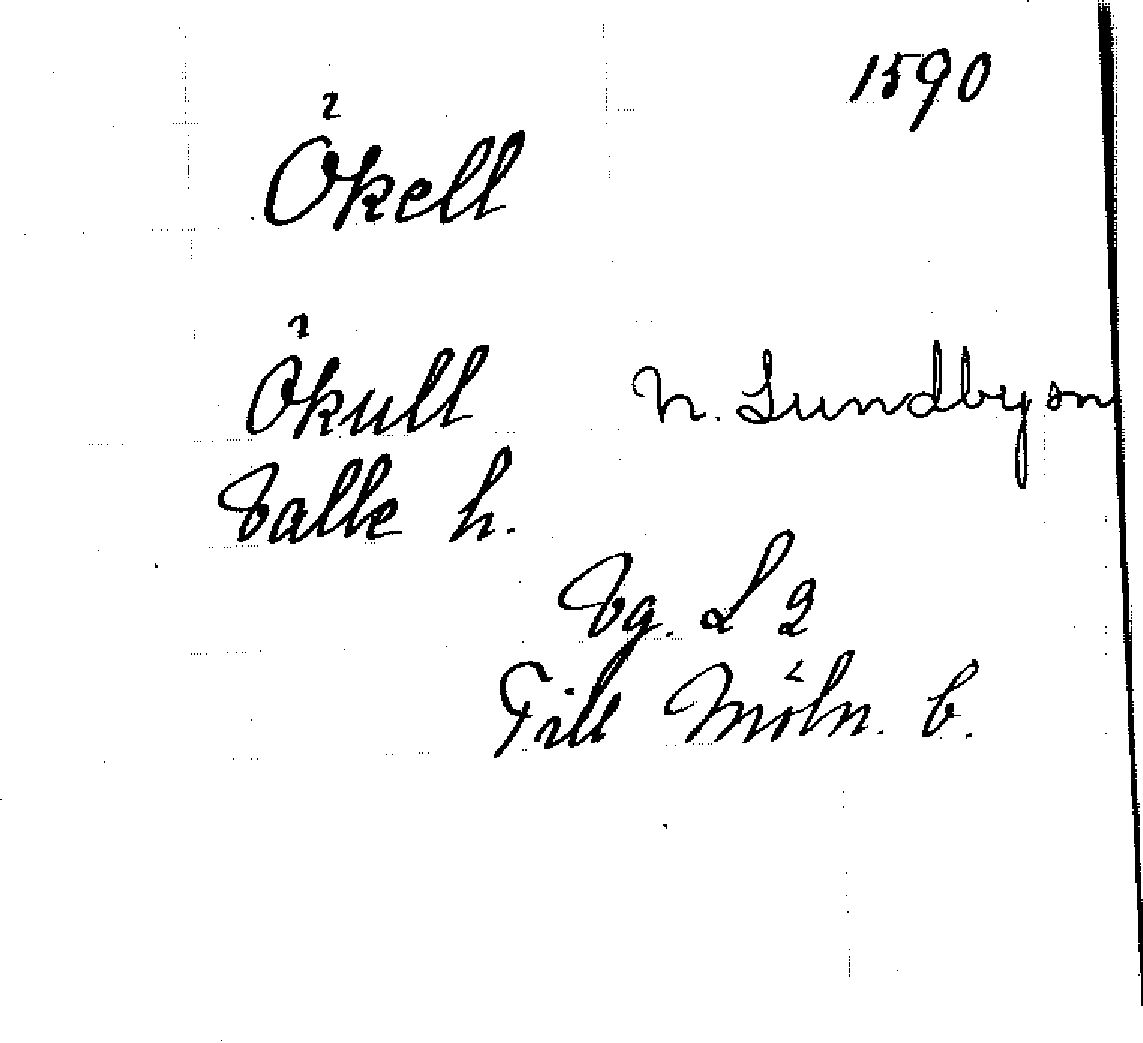 1590
Ökell
Ökull N. Lundby sn
Valle h.
Vg. L 2
Till Möln. b.